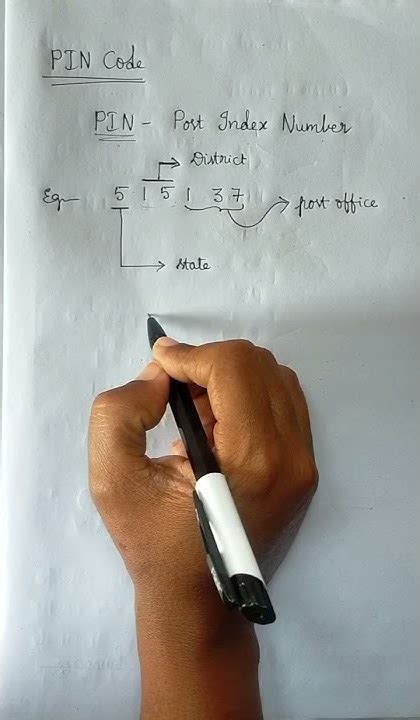 PIN Code
PIN - Post Index Number
District
Eg- 5 1 5 1 3 7 post office
state